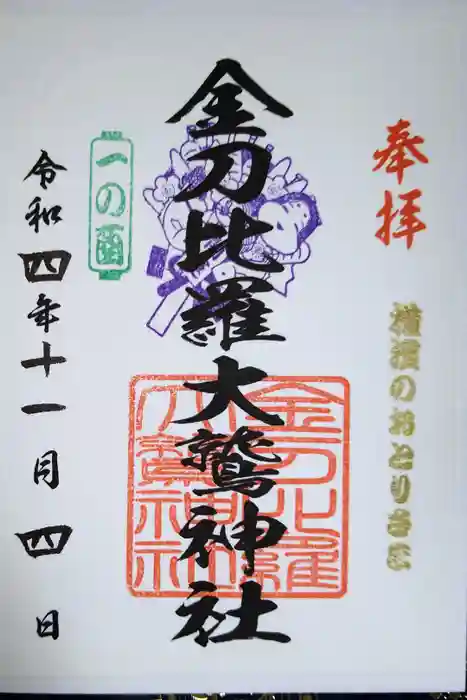 奉拝
横濱のおとりさま
金刀比羅大鷲神社
金刀比羅大鷲神社
一の酉
令和四年十一月四日